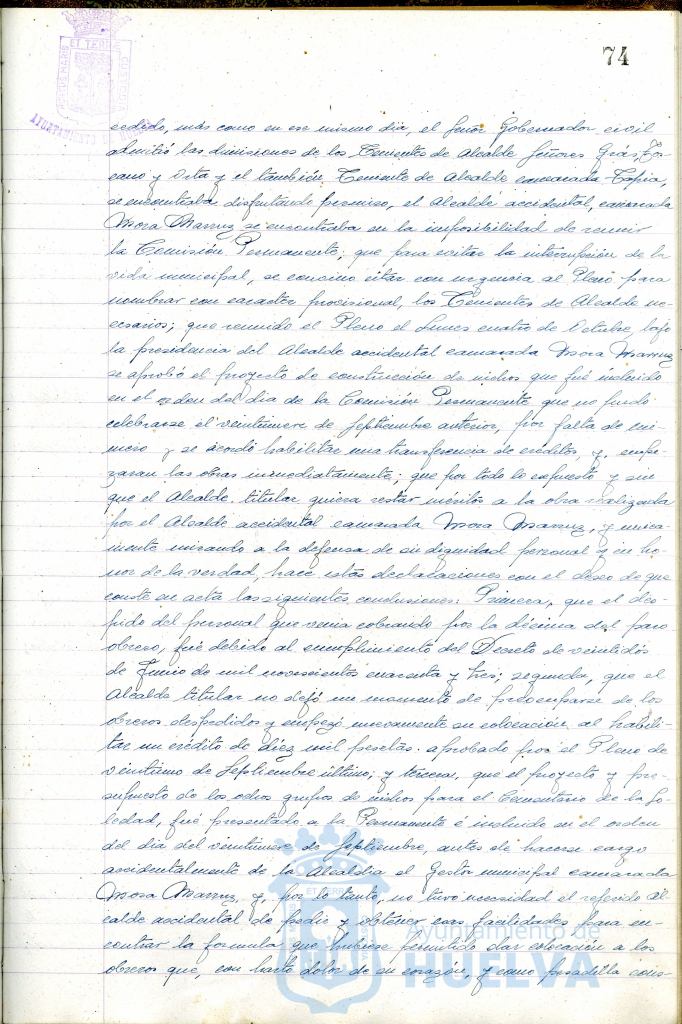 74
cedido, más como en ese mismo dia, el Señor Gobernador civil
admitió las dimisiones de los Tenientes de Alcalde Señores Grás, Tos-
cano y Orta y el también Teniente de Alcalde camarada Tapia,
se encontraba disfrutando permiso, el Alcalde accidental, camarada
Mora Marruz se encontraba en la imposibilidad de reunir
la Comisión Permanente; que para evitar la interrupción de la
vida municipal, se convino citar con urgencia al Pleno para
nombrar con caracter provisional, los Tenientes de Alcalde ne-
cesarios; que reunido el Pleno el Lunes cuatro de Octubre, bajo
la presidencia del Alcalde accidental camarada Mora Marruz
se aprobó el proyecto de construcción de nichos que fué incluido
en el orden del dia de la Comisión Permanente que no pudo
celebrarse el veintinueve de Septiembre anterior, por falta de nú-
mero y se acordó habilitar una transferencia de créditos, y, empe-
zaran las obras inmediatamente; que por todo lo expuesto y sin
que el Alcalde titular quiera restar méritos a la obra realizada
por el Alcalde accidental camarada Mora Marruz, y unica-
mente mirando a la defensa de su dignidad personal y en ho-
nor de la verdad, hace estas declaraciones con el deseo de que
conste en acta las siguientes conclusiones: Primera, que el des-
pido del personal que venia cobrando por la décima del paro
obrero, fué debido al cumplimiento del Decreto de veintidós
de Junio de mil novecientos cuarenta y tres; segunda, que el
Alcalde titular no dejó un momento de preocuparse de los
obreros despedidos y empezó nuevamente su colocación al habili-
tar un crédito de diez mil pesetas aprobado por el Pleno de
veintiuno de Septiembre último; y tercera, que el proyecto y pre-
supuesto de los ocho grupos de nichos para el Cementerio de la So-
ledad, fué presentado a la Permanente é incluido en el orden
del dia del veintinueve de Septiembre, antes de hacerse cargo
accidentalmente de la Alcaldia el Gestor municipal camarada
Mora Marruz, y, por lo tanto, no tuvo necesidad el referido Al-
calde accidental de pedir y obtener esas facilidades para en-
contrar la formula que hubiese permitido dar colocación a los
obreros que, con harto dolor de su corazón, y como pesadilla cons-
Ayuntamiento de
HUELVA